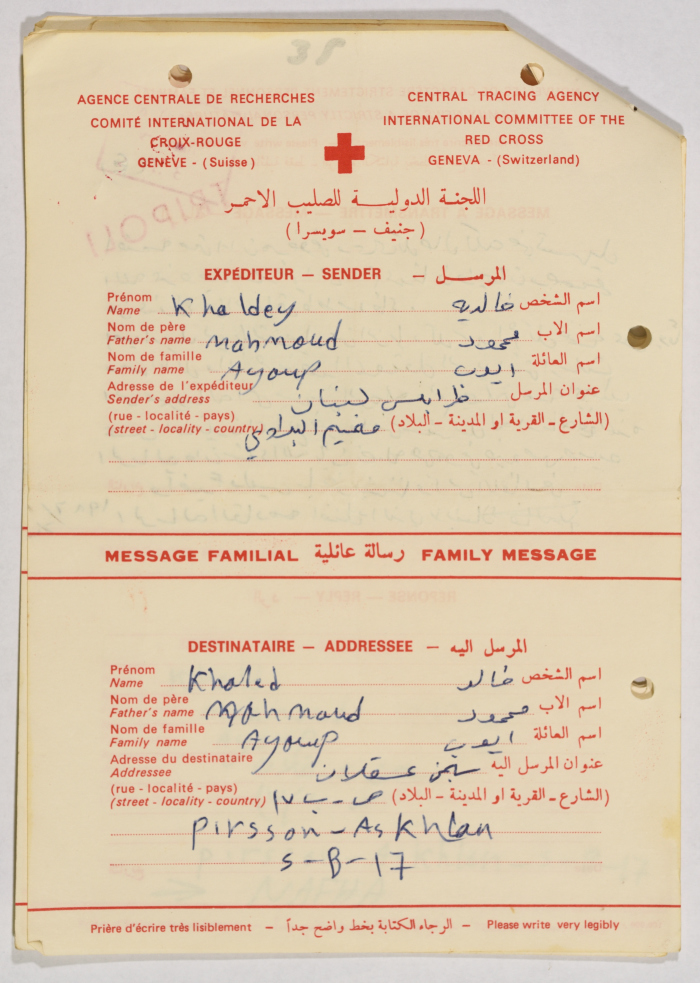 38
AGENCE CENTRALE DE RECHERCHES
COMITÉ INTERNATIONAL DE LA
CROIX-ROUGE
GENÈVE - (Suisse)
CENTRAL TRACING AGENCY
INTERNATIONAL COMMITTEE OF THE
RED CROSS
GENEVA - (Switzerland)
TRIPOLI
اللجنة الدولية للصليب الاحمر
(جنيف - سويسرا)
EXPÉDITEUR — SENDER — المرسل
Prénom
Name Khaldey خالديه اسم الشخص
Nom de père
Father's name Mahmoud محمود اسم الاب
Nom de famille
Family name Ayoup ايوب اسم العائلة
Adresse de l'expéditeur
Sender's address طرابلس لبنان عنوان المرسل
(rue - localité - pays)
(street - locality - country) مخيم البداوي (الشارع - القرية او المدينة - البلاد)
MESSAGE FAMILIAL رسالة عائلية FAMILY MESSAGE
DESTINATAIRE — ADDRESSEE — المرسل اليه
Prénom
Name Khaled خالد اسم الشخص
Nom de père
Father's name Mahmoud محمود اسم الاب
Nom de famille
Family name Ayoup ايوب اسم العائلة
Adresse du destinataire
Addressee سجن عسقلان عنوان المرسل اليه
(rue - localité - pays)
(street - locality - country) ص - ب ١٧ (الشارع - القرية او المدينة - البلاد)
Pirsson - Askhlan
S-B-17
Prière d'écrire très lisiblement — الرجاء الكتابة بخط واضح جداً — Please write very legibly